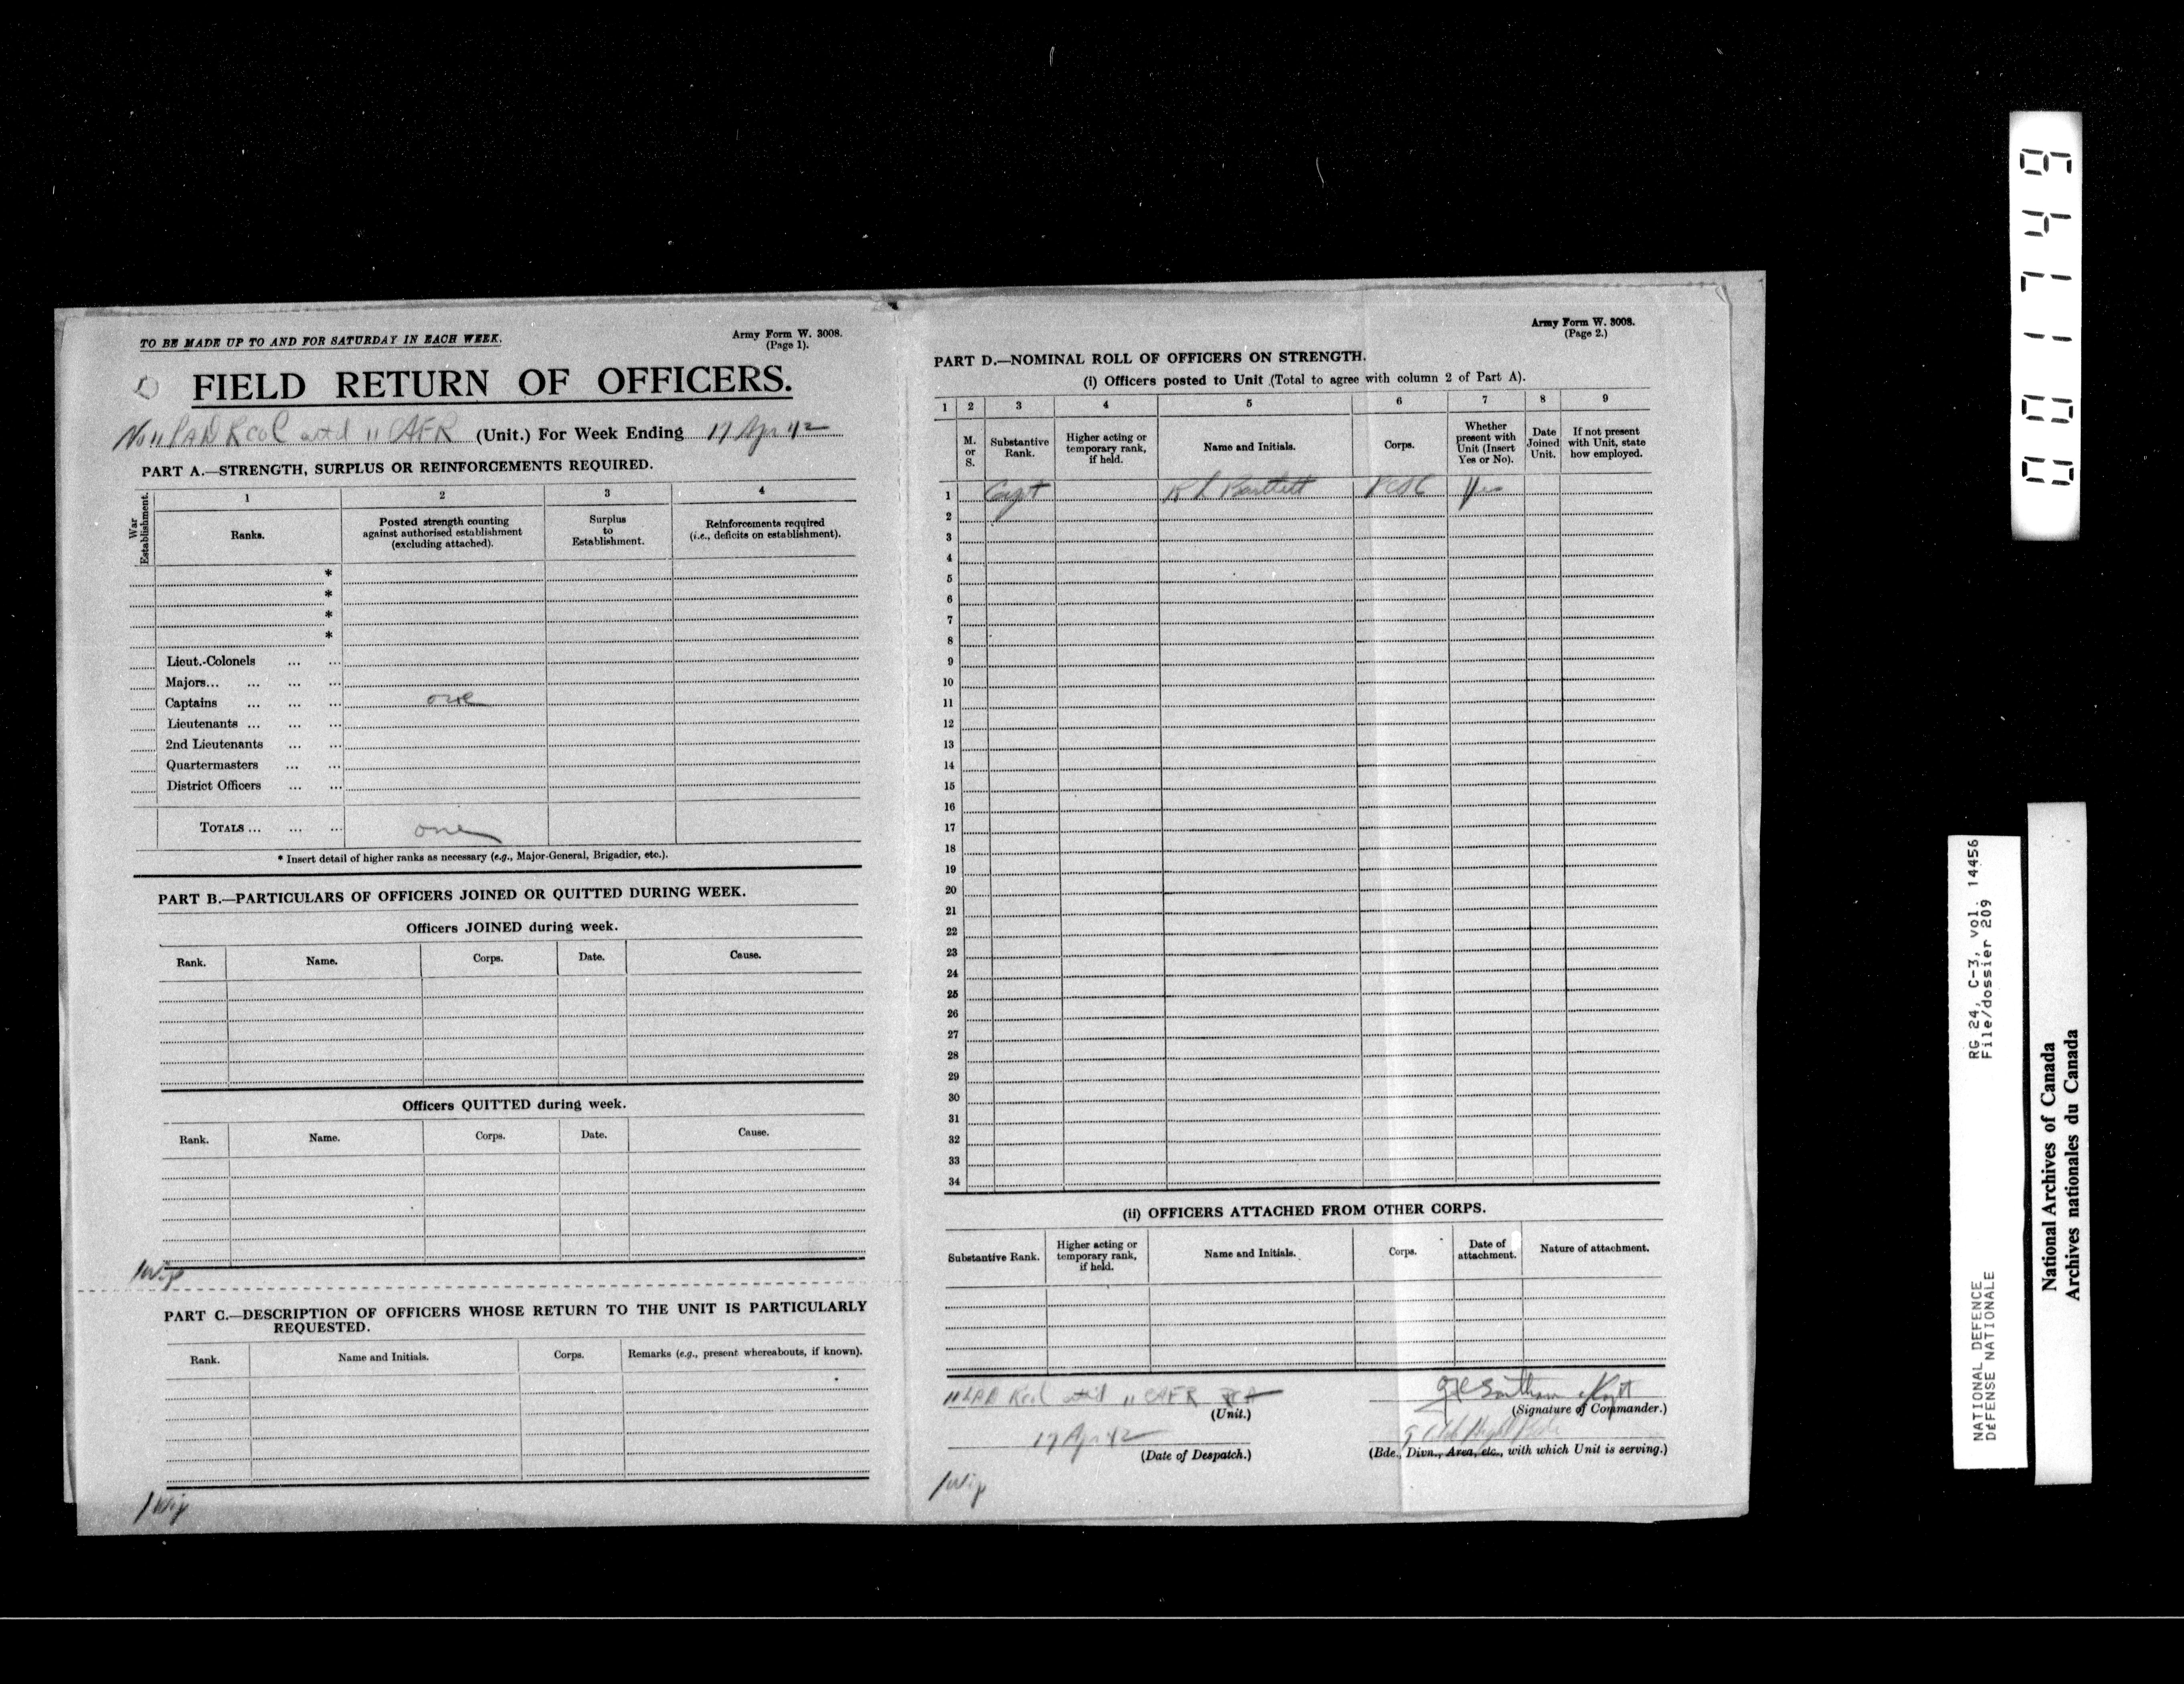 TO BE MADE UP TO AND FOR SATURDAY IN EACH WEEK.
Army Form W. 3008.
(Page 1).
FIELD RETURN OF OFFICERS.
No 11 LAD RCOC attd 11 CAFR (Unit.) For Week Ending 17 Apr 42
PART A.—STRENGTH, SURPLUS OR REINFORCEMENTS REQUIRED.
War Establishment.
1 2 3 4
Ranks. Posted strength counting against authorised establishment (excluding attached). Surplus to Establishment. Reinforcements required (i.e., deficits on establishment).
*
*
*
*
Lieut.-Colonels ... ...
Majors... ... ... ...
Captains ... ... ... one
Lieutenants ... ... ...
2nd Lieutenants ... ...
Quartermasters ... ...
District Officers ... ...
TOTALS ... ... ... one
* Insert detail of higher ranks as necessary (e.g., Major-General, Brigadier, etc.).
PART B.—PARTICULARS OF OFFICERS JOINED OR QUITTED DURING WEEK.
Officers JOINED during week.
Rank. Name. Corps. Date. Cause.
Officers QUITTED during week.
Rank. Name. Corps. Date. Cause.
PART C.—DESCRIPTION OF OFFICERS WHOSE RETURN TO THE UNIT IS PARTICULARLY
REQUESTED.
Rank. Name and Initials. Corps. Remarks (e.g., present whereabouts, if known).
Army Form W. 3008.
(Page 2.)
PART D.—NOMINAL ROLL OF OFFICERS ON STRENGTH.
(i) Officers posted to Unit (Total to agree with column 2 of Part A).
1 2 3 4 5 6 7 8 9
M. or S. Substantive Rank. Higher acting or temporary rank, if held. Name and Initials. Corps. Whether present with Unit (Insert Yes or No). Date Joined Unit. If not present with Unit, state how employed.
1 Capt Bartlett Yes
2
3
4
5
6
7
8
9
10
11
12
13
14
15
16
17
18
19
20
21
22
23
24
25
26
27
28
29
30
31
32
33
34
(ii) OFFICERS ATTACHED FROM OTHER CORPS.
Substantive Rank. Higher acting or temporary rank, if held. Name and Initials. Corps. Date of attachment. Nature of attachment.
11 LAD attd 11 CAFR
(Unit.)
(Signature of Commander.)
17 Apr 42
(Date of Despatch.)
(Bde., Divn., Area, etc., with which Unit is serving.)
001749
RG 24, C-3, vol. 14456
File/dossier 209
NATIONAL DEFENCE
DÉFENSE NATIONALE
National Archives of Canada
Archives nationales du Canada